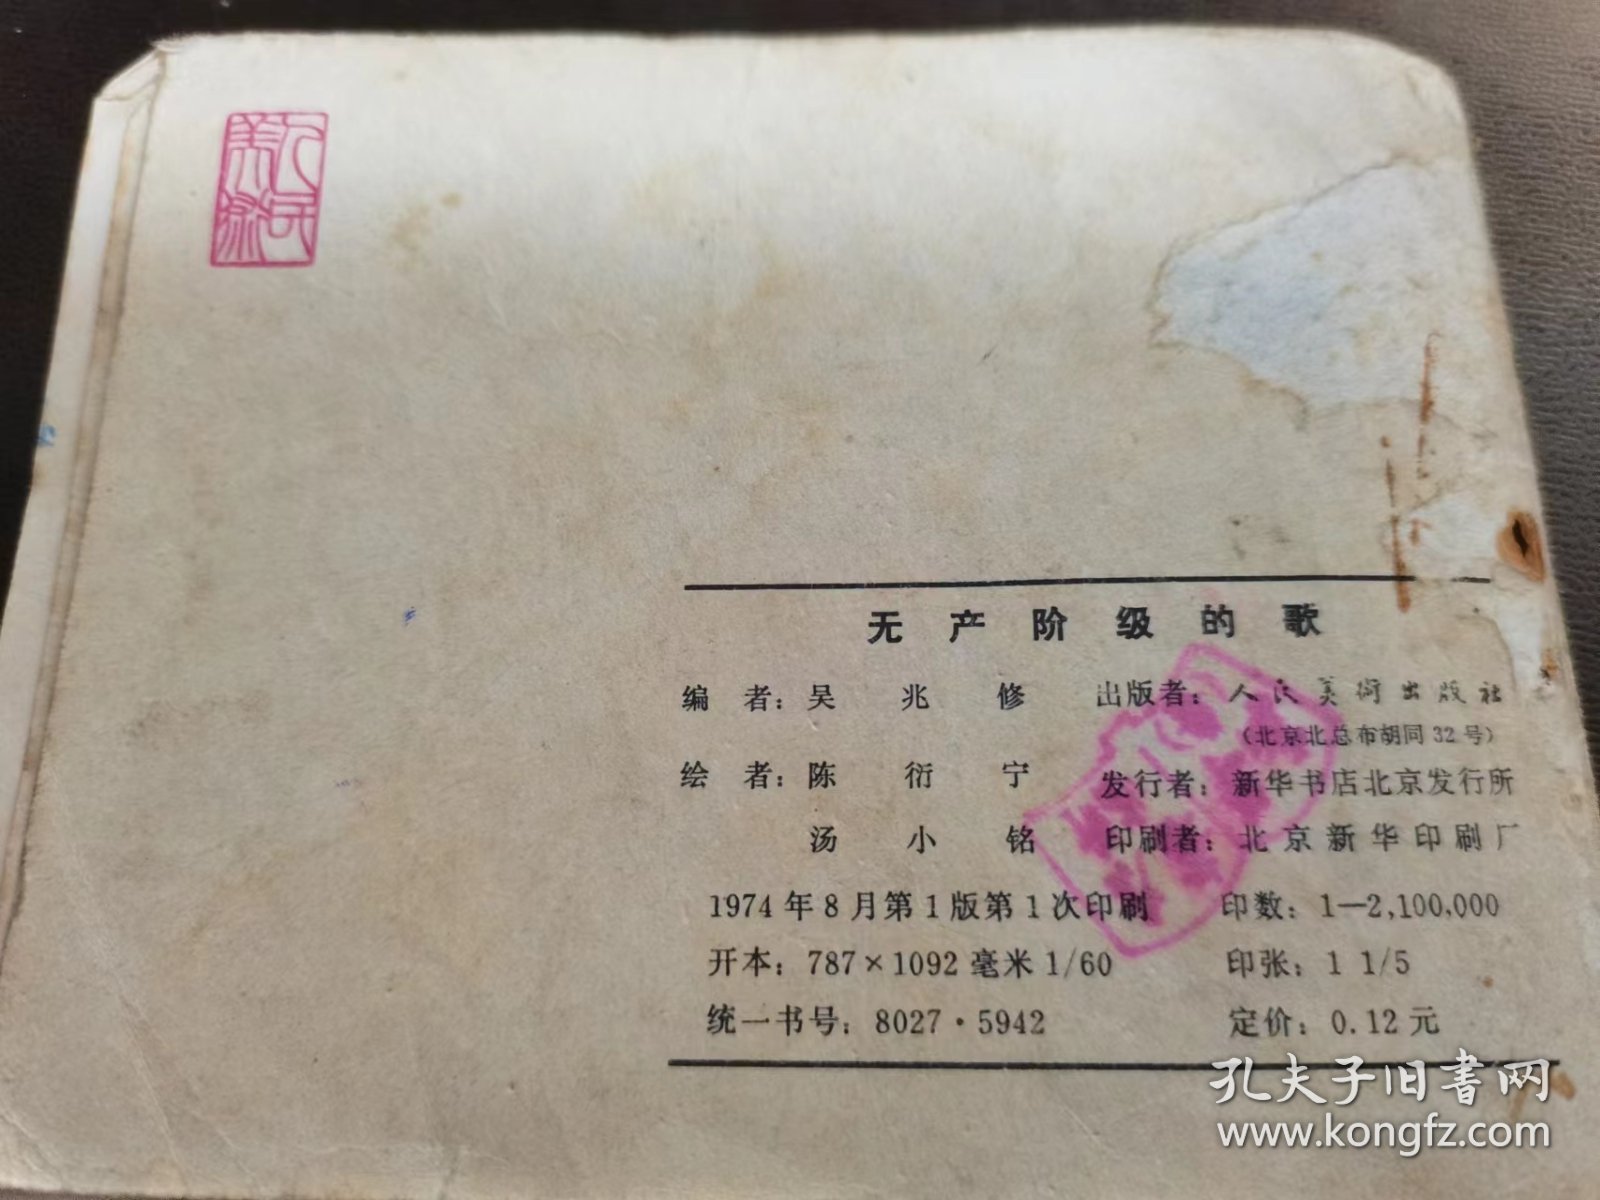 人民
美术
无产阶级的歌
编者：吴兆修
出版者：人民美術出版社
（北京北总布胡同32号）
绘者：陈衍宁
发行者：新华书店北京发行所
汤小铭
印刷者：北京新华印刷厂
1974年8月第1版第1次印刷
印数：1—2,100,000
开本：787×1092毫米1/60
印张：1 1/5
统一书号：8027·5942
定价：0.12元
孔夫子旧書网
www.kongfz.com